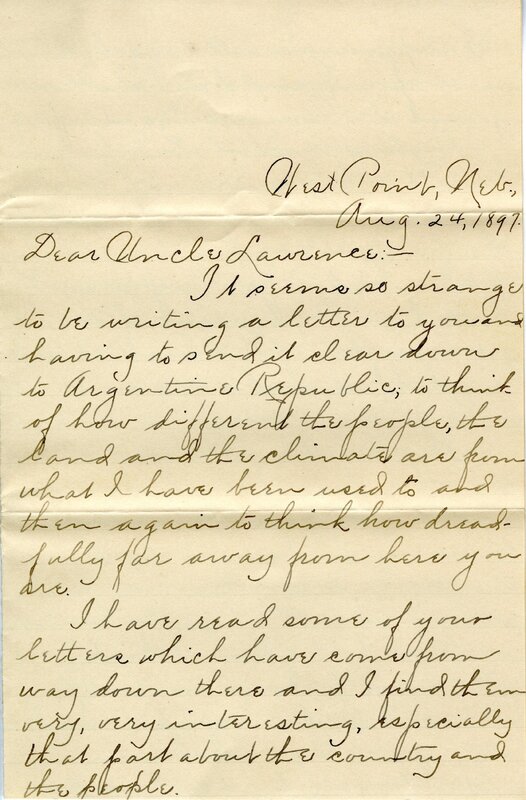 West Point, Neb.,
Aug. 24, 1897.
Dear Uncle Lawrence:—
It seems so strange
to be writing a letter to you and
having to send it clear down
to Argentine Republic; to think
of how different the people, the
land and the climate are from
what I have been used to and
then again to think how dread-
fully far away from here you
are.
I have read some of your
letters which have come from
way down there and I find them
very, very interesting, especially
that part about the country and
the people.